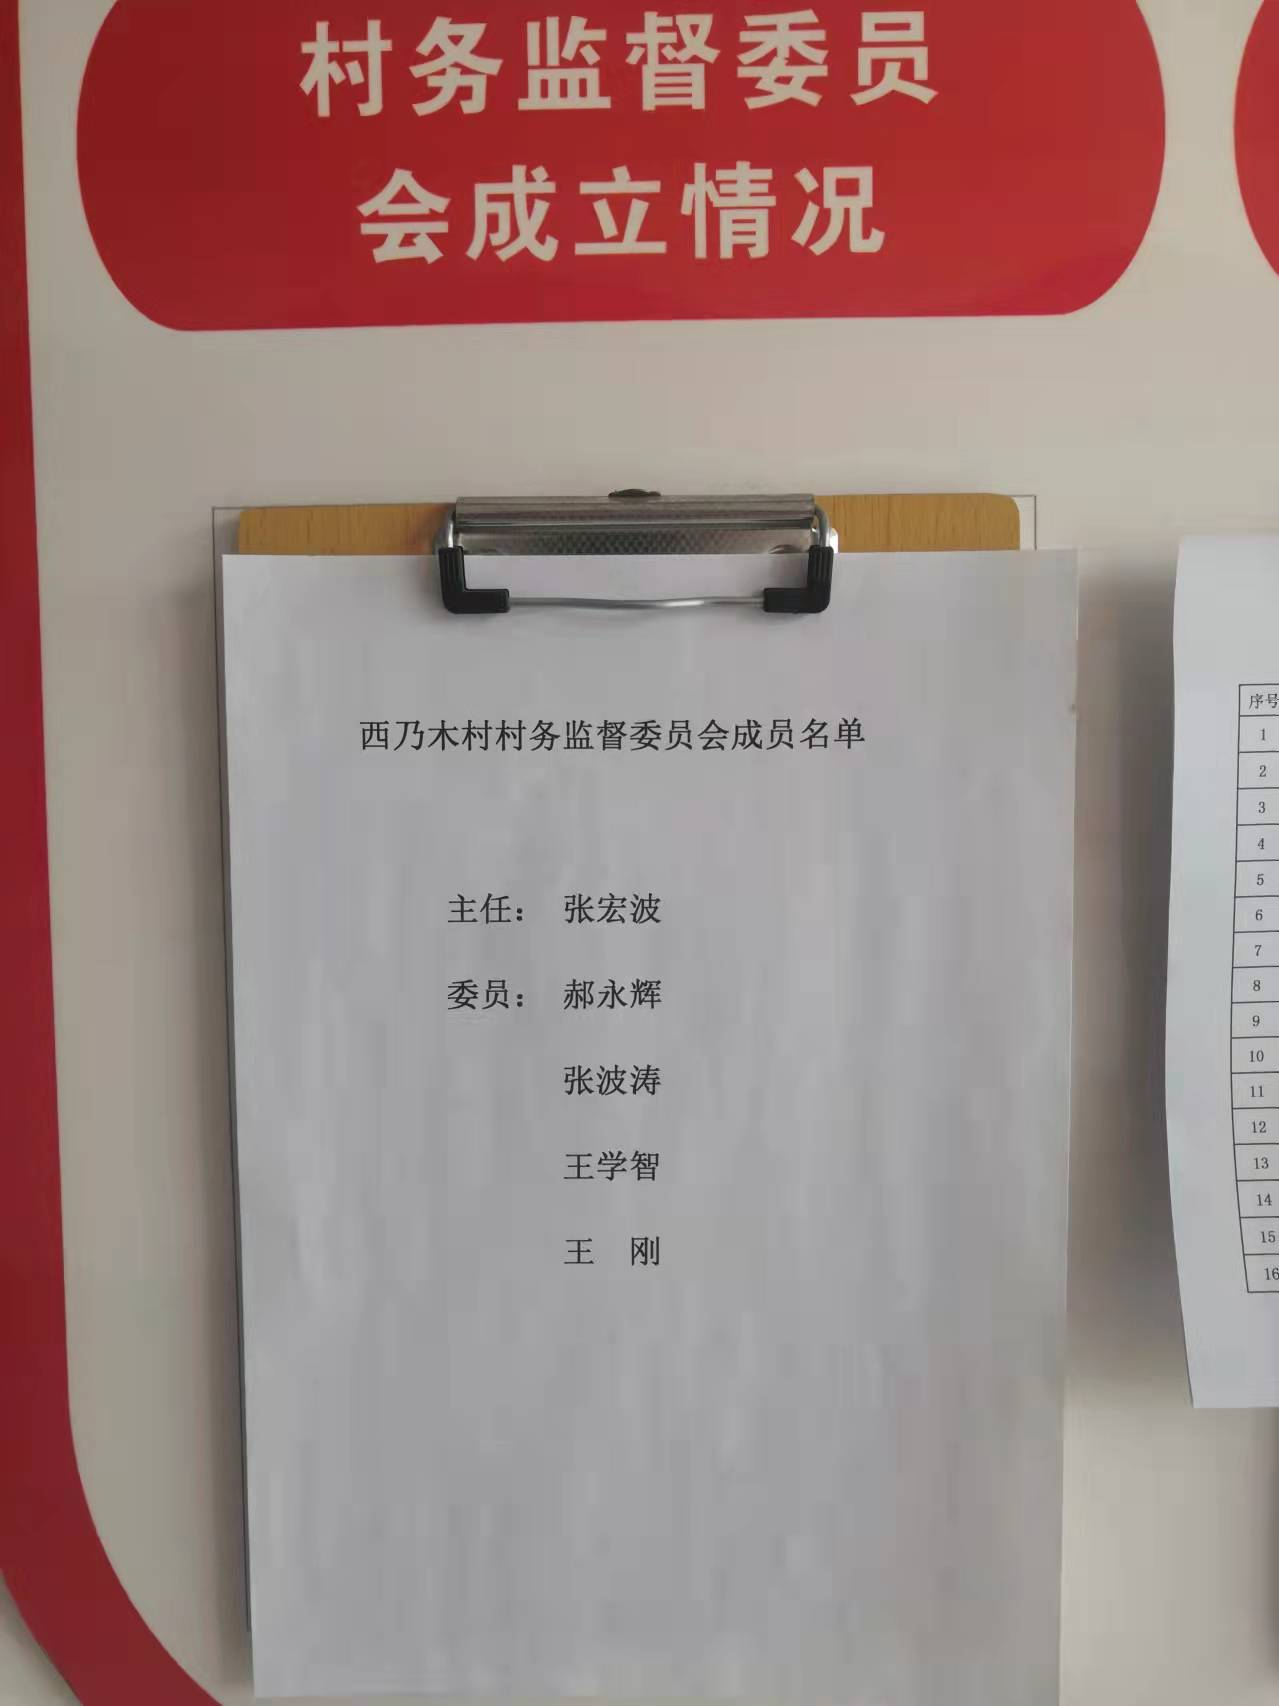 村务监督委员
会成立情况
西乃木村村务监督委员会成员名单
主任： 张宏波
委员： 郝永辉
张波涛
王学智
王 刚
序号
1
2
3
4
5
6
7
8
9
10
11
12
13
14
15
16